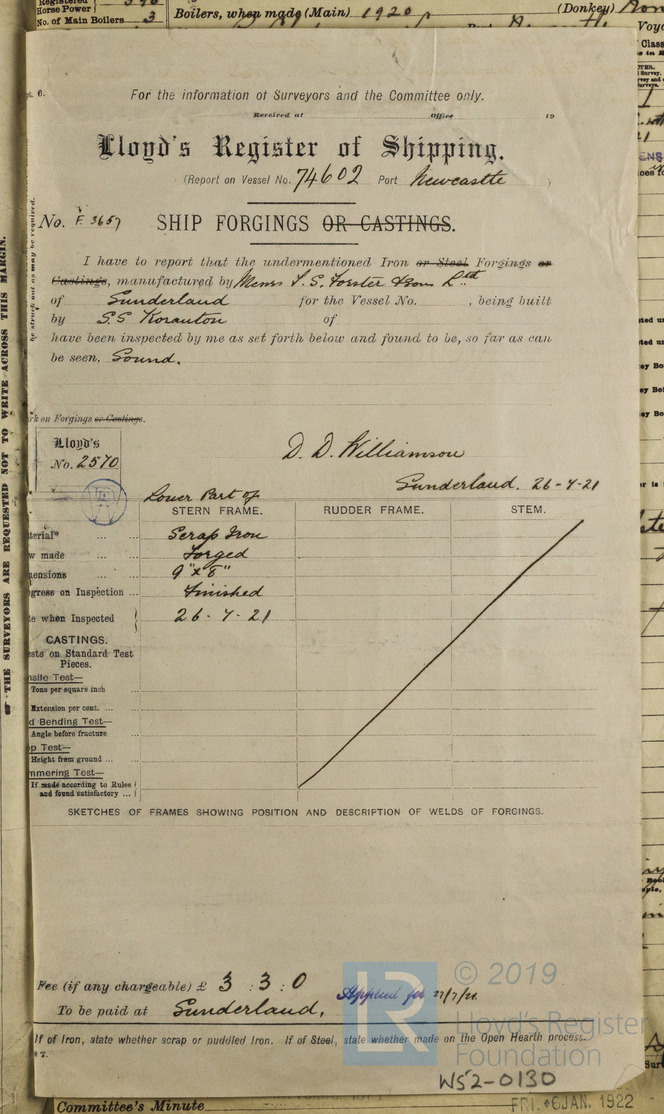 Horse Power
No. of Main Boilers 3
Boilers, when made (Main) 1920
(Donkey)
For the information of Surveyors and the Committee only.
Received at Office 19
Lloyd's Register of Shipping.
(Report on Vessel No. 74602 Port Newcastle )
No. F. 3657 SHIP FORGINGS OR CASTINGS.
I have to report that the undermentioned Iron or Steel Forgings or
Castings, manufactured by Messrs T. S. Forster & Sons Ltd
of Sunderland for the Vessel No. , being built
by S.S Koranton of
have been inspected by me as set forth below and found to be, so far as can
be seen, Sound.
rk on Forgings or Castings.
Lloyd's
No. 2570
D. D. Williamson
Sunderland. 26-7-21
Lower Part of
STERN FRAME. RUDDER FRAME. STEM.
terial* ... ... Scrap Iron
w made ... ... Forged
mensions ... ... 9" x 8"
gress on Inspection ... Finished
te when Inspected 26-7-21
CASTINGS.
sts on Standard Test
Pieces.
nsile Test—
Tons per square inch
Extension per cent. ... ...
d Bending Test—
Angle before fracture ...
p Test—
Height from ground ... ...
mmering Test—
If made according to Rules
and found satisfactory ...
SKETCHES OF FRAMES SHOWING POSITION AND DESCRIPTION OF WELDS OF FORGINGS.
Fee (if any chargeable) £ 3 : 3 : 0 Applied for 27/7/21
To be paid at Sunderland.
If of Iron, state whether scrap or puddled Iron. If of Steel, state whether made on the Open Hearth process.
LR © 2019
Lloyd's Register
Foundation
WS2-0130
Committee's Minute FRI. 6 JAN. 1922
THE SURVEYORS ARE REQUESTED NOT TO WRITE ACROSS THIS MARGIN.